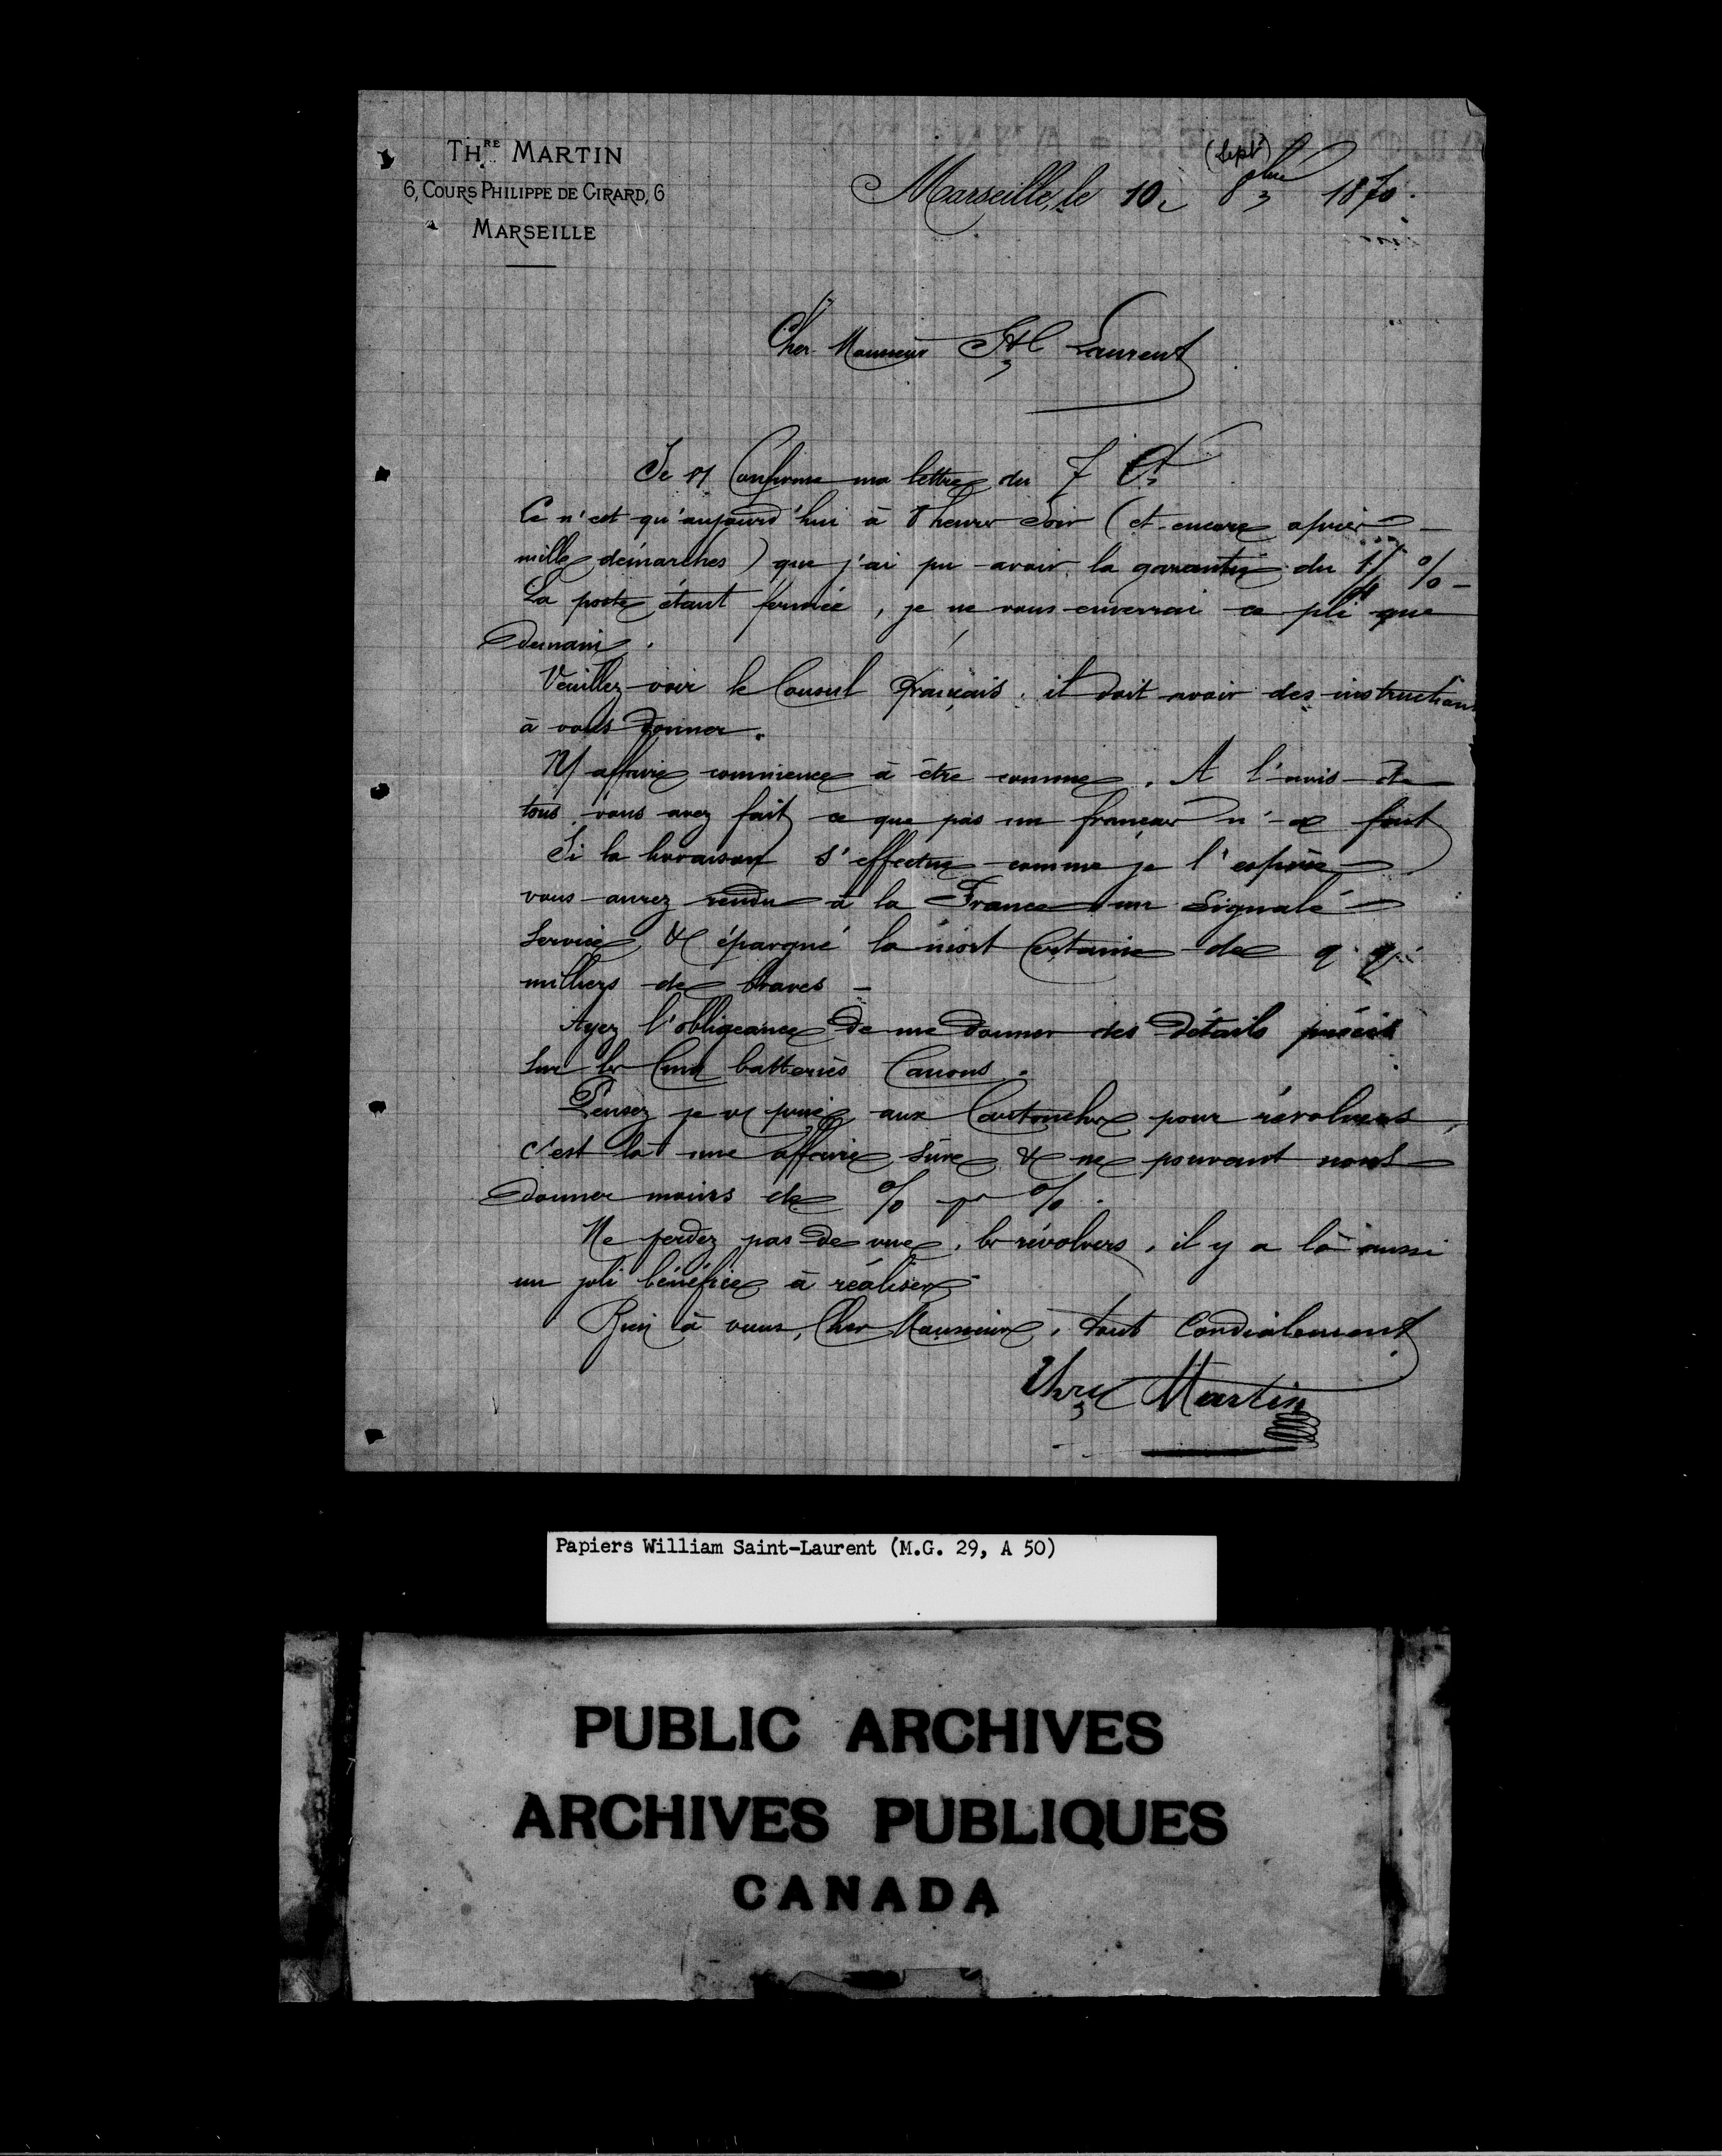 THRE MARTIN
6, COURS PHILIPPE DE GIRARD, 6
MARSEILLE
(Sept)
Marseille, le 10 8bre 1870.
Cher Monsieur St Laurent
Je vs Confirme ma lettre du 7 Ct
Ce n'est qu'aujourd'hui à 8 heures Soir (et encore après
mille démarches) que j'ai pu avoir la garantie du %
La poste étant fermée, je ne vous enverrai ce pli que
Demain.
Veuillez voir le Consul français. il doit avoir des instructions
à vous Donner.
N/ affaire commence à être connue. A l'avis de
tous, vous avez fait ce que pas un français n'a fait
Si la livraison s'effectue comme je l'espère
vous aurez rendu à la France un Signalé
Service & épargné la mort Certaine de q. q.
milliers de braves -
Ayez l'obligeance De me Donner des Détails précis
Sur les Cinq batteries Canons.
Pensez je vs prie aux Cartouches pour révolvers,
c'est là une affaire Sûre & ne pouvant nous
Donner moins de % pr %.
Ne perdez pas De vue, les révolvers, il y a là aussi
un joli bénéfice à réaliser
Bien à vous, Cher Monsieur, tout Cordialement
Thre Martin
Papiers William Saint-Laurent (M.G. 29, A 50)
PUBLIC ARCHIVES
ARCHIVES PUBLIQUES
CANADA